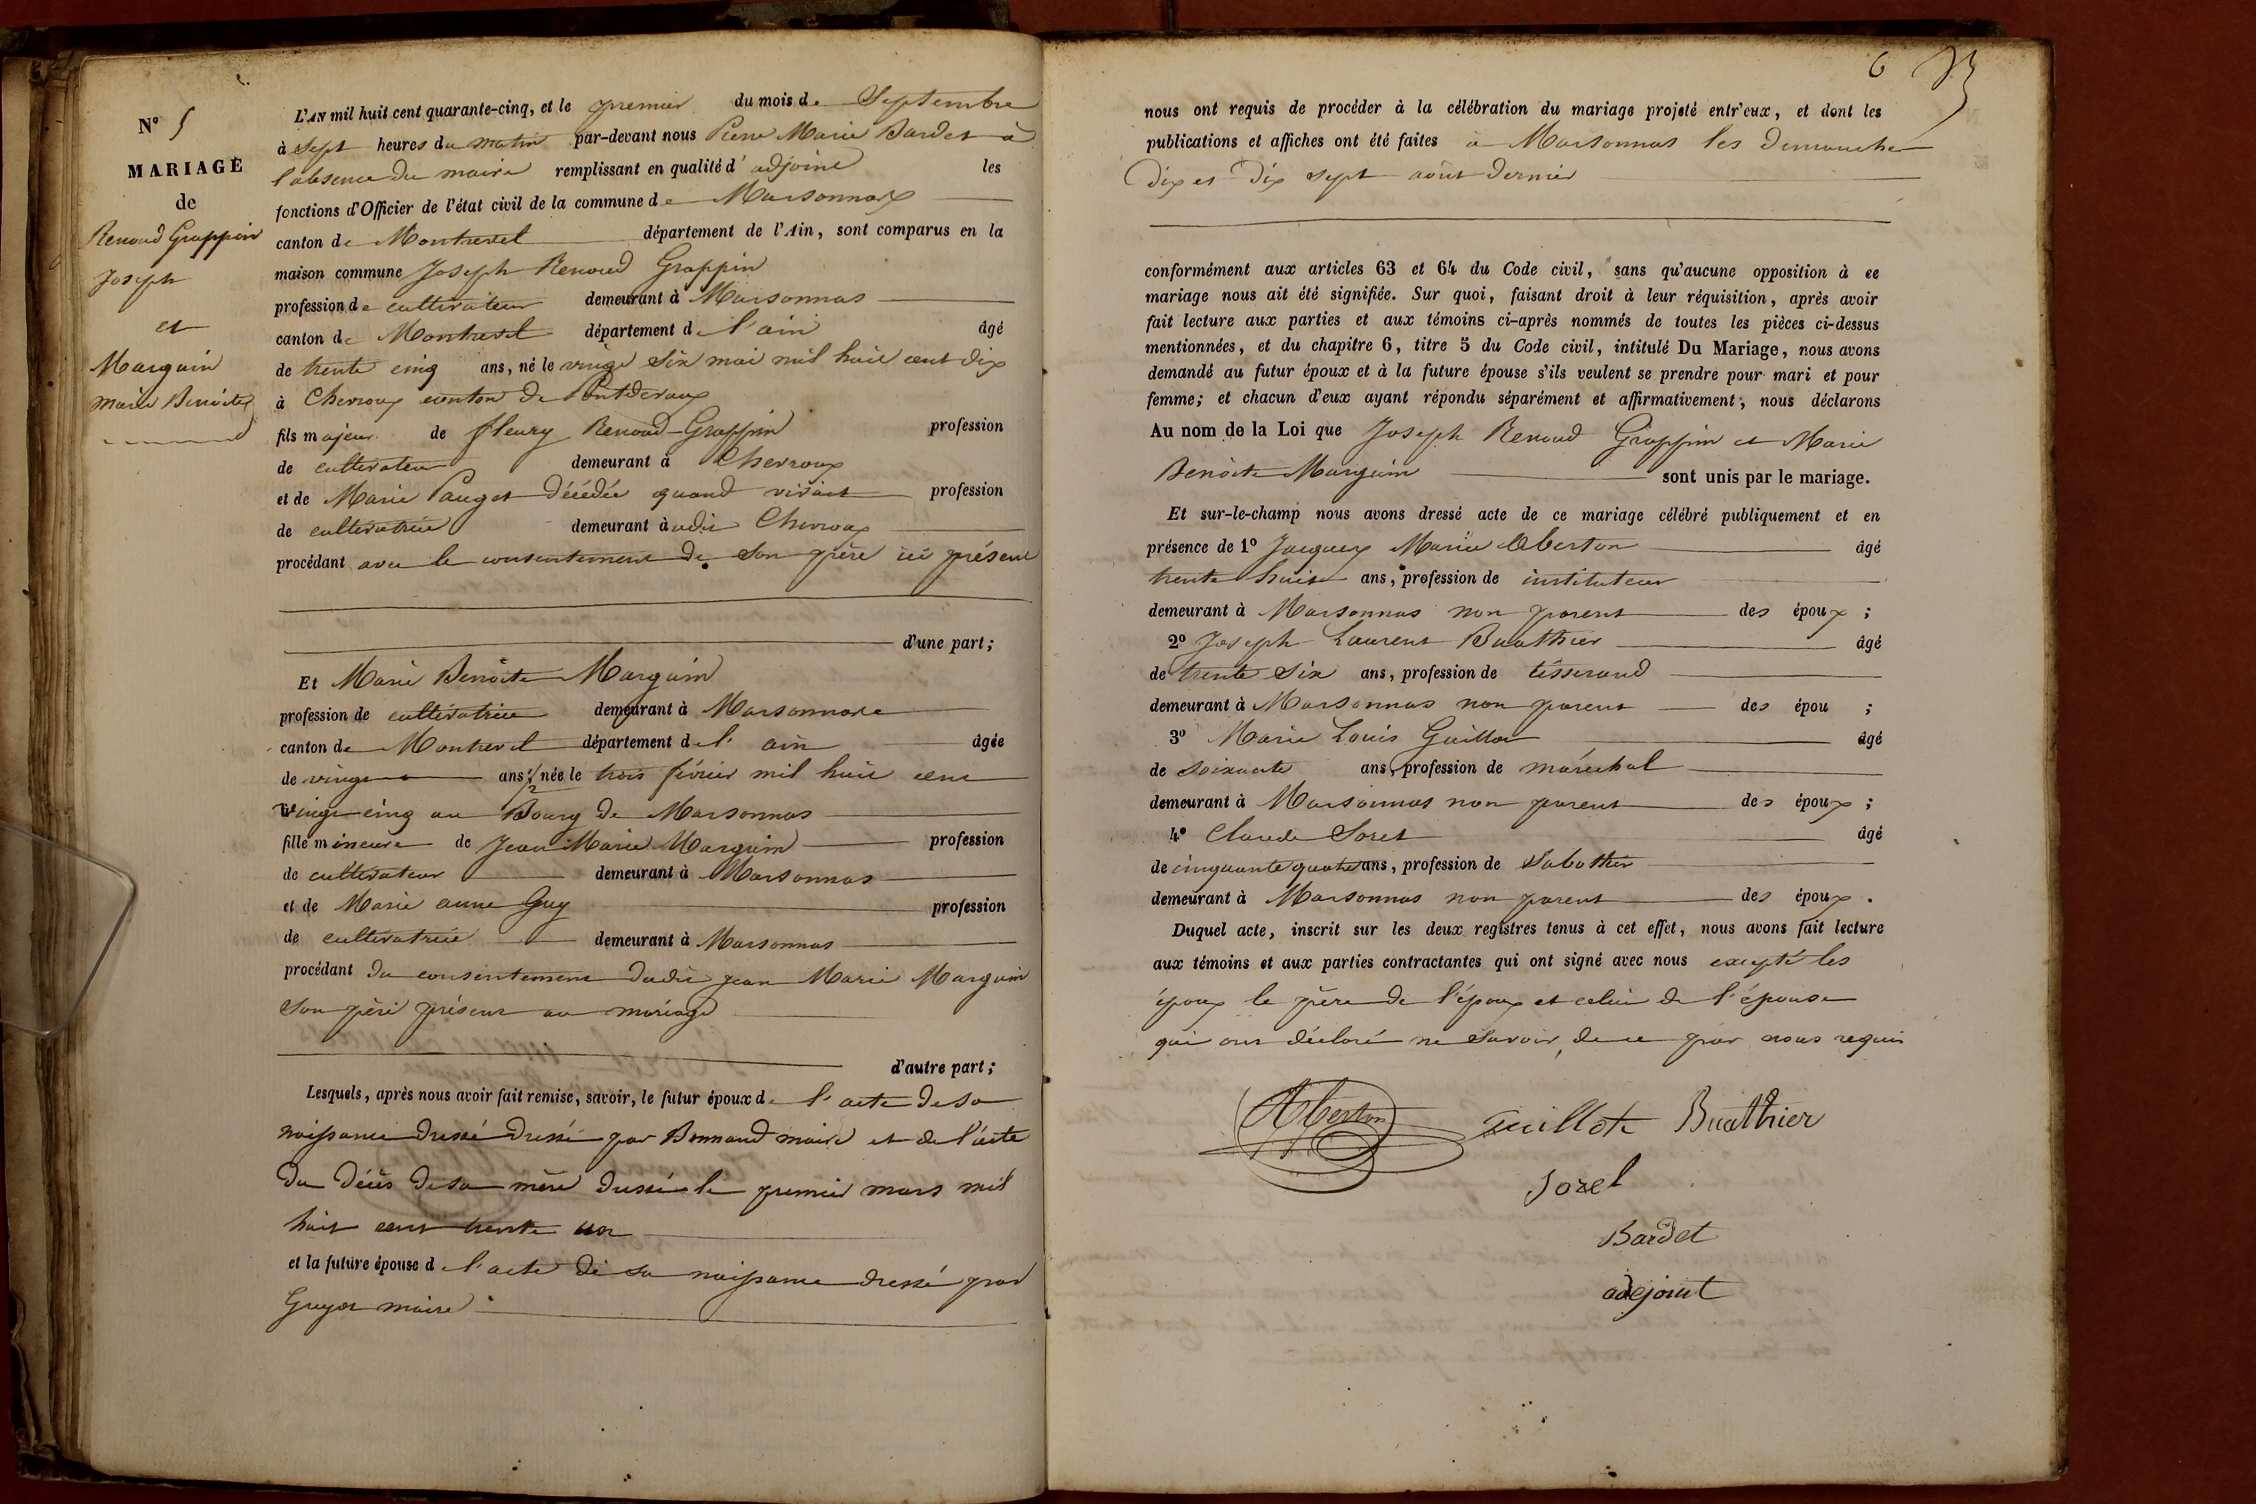 N° 5
MARIAGE
de
Renoud Grappin
Joseph
et
Marguin
marie Benoite
L'AN mil huit cent quarante-cinq, et le premier du mois de Septembre
à sept heures du matin par-devant nous Pierre Marie Bardet à
l'absence du maire remplissant en qualité d'adjoint les
fonctions d'Officier de l'état civil de la commune de Marsonnax
canton de Montrevel département de l'Ain, sont comparus en la
maison commune Joseph Renoud Grappin
profession de cultivateur demeurant à Marsonnas
canton de Montrevel département de l'ain âgé
de trente cinq ans, né le vingt six mai mil huit cent dix
à Chevroux canton de Pontdevaux
fils majeur de fleury Renoud-Grappin profession
de cultivateur demeurant à Chevroux
et de Marie Pauget décédée quand vivait profession
de cultivatrice demeurant audit Chevroux
procédant avec le consentement de son père ici présent
d'une part;
Et Marie Benoite Marguin
profession de cultivatrice demeurant à Marsonnax
canton de Montrevel département de l'ain âgée
de vingt ans 1/2 née le trois février mil huit cent
vingt cinq au Bourg de Marsonnas
fille mineure de Jean Marie Marguin profession
de cultivateur demeurant à Marsonnas
et de Marie anne Guy profession
de cultivatrice demeurant à Marsonnas
procédant du consentement dudit jean Marie Marguin
son père présent au mariage
d'autre part;
Lesquels, après nous avoir fait remise, savoir, le futur époux de l'acte de sa
naissance dressé dressé par Bonnaud maire et de l'acte
du décès de sa mère dressé le premier mars mil
huit cent trente un
et la future épouse de l'acte de sa naissance dressé par
Guyot maire
6
nous ont requis de procéder à la célébration du mariage projeté entr'eux, et dont les
publications et affiches ont été faites à Marsonnas les dimanche
dix et dix sept août dernier
conformément aux articles 63 et 64 du Code civil, sans qu'aucune opposition à ce
mariage nous ait été signifiée. Sur quoi, faisant droit à leur réquisition, après avoir
fait lecture aux parties et aux témoins ci-après nommés de toutes les pièces ci-dessus
mentionnées, et du chapitre 6, titre 5 du Code civil, intitulé Du Mariage, nous avons
demandé au futur époux et à la future épouse s'ils veulent se prendre pour mari et pour
femme; et chacun d'eux ayant répondu séparément et affirmativement, nous déclarons
Au nom de la Loi que Joseph Renoud Grappin et Marie
Benoite Marguin sont unis par le mariage.
Et sur-le-champ nous avons dressé acte de ce mariage célébré publiquement et en
présence de 1° Jacques Marie Oberton âgé
trente huit ans, profession de instituteur
demeurant à Marsonnas non parent des époux;
2° Joseph Laurent Buathier âgé
de trente six ans, profession de tisserand
demeurant à Marsonnas non parent des épou;
3° Marie Louis Guillot âgé
de soixante ans, profession de maréchal
demeurant à Marsonnas non parent des époux;
4° Claude Soret âgé
de cinquante quatre ans, profession de Sabothier
demeurant à Marsonnas non parent des époux.
Duquel acte, inscrit sur les deux registres tenus à cet effet, nous avons fait lecture
aux témoins et aux parties contractantes qui ont signé avec nous excepté les
époux le père de l'époux et celui de l'épouse
qui ont déclaré ne savoir, de ce par nous requis
Oberton Guillot Buathier
Sorel
Bardet
adejoint